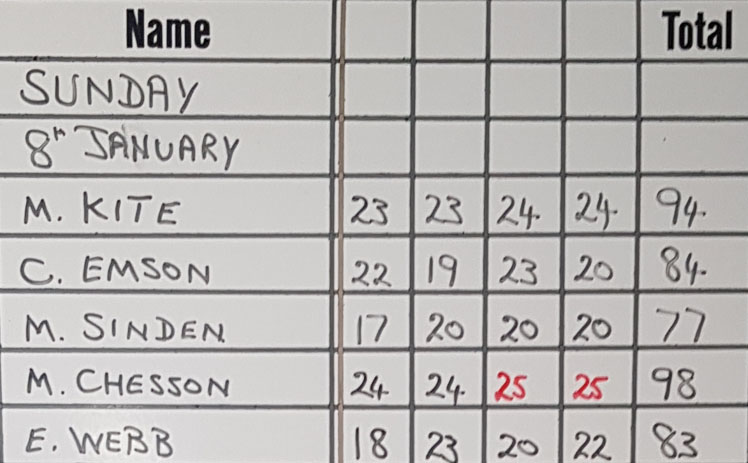 Name Total
SUNDAY
8th JANUARY
M. KITE 23 23 24 24 94
C. EMSON 22 19 23 20 84
M. SINDEN 17 20 20 20 77
M. CHESSON 24 24 25 25 98
E. WEBB 18 23 20 22 83